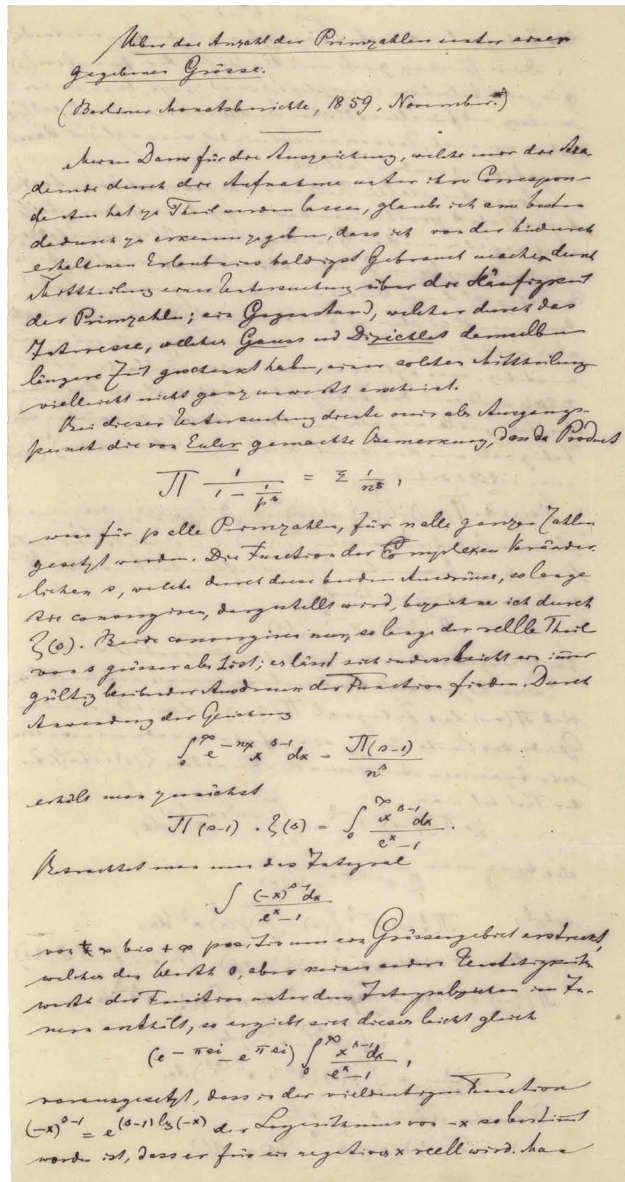 Ueber die Anzahl der Primzahlen unter einer
gegebenen Grösse.
(Berliner Monatsberichte, 1859, November.)
Meinen Dank für die Auszeichnung, welche mir die Aka-
demie durch die Aufnahme unter ihre Correspon-
denten hat zu Theil werden lassen, glaube ich am besten
dadurch zu erkennen zu geben, dass ich von der hiedurch
erhaltenen Erlaubniss baldigst Gebrauch mache durch
Mittheilung einer Untersuchung über die Häufigkeit
der Primzahlen; ein Gegenstand, welcher durch das
Interesse, welches Gauss und Dirichlet demselben
längere Zeit geschenkt haben, einer solchen Mittheilung
vielleicht nicht ganz unwerth erscheint.
Bei dieser Untersuchung diente mir als Ausgangs-
punkt die von Euler gemachte Bemerkung, dass das Product
∏ 1/(1 − 1/p^s) = Σ 1/n^s,
wenn für p alle Primzahlen, für n alle ganzen Zahlen
gesetzt werden. Die Function der complexen Veränder-
lichen s, welche durch diese beiden Ausdrücke, so lange
sie convergiren, dargestellt wird, bezeichne ich durch
ζ(s). Beide convergiren nur, so lange der reelle Theil
von s grösser als 1 ist; es lässt sich indess leicht ein immer
gültig bleibender Ausdruck der Function finden. Durch
Anwendung der Gleichung
∫₀^∞ e^(−nx) x^(s−1) dx = Π(s−1)/n^s
erhält man zunächst
Π(s−1) . ζ(s) = ∫₀^∞ x^(s−1)dx/(e^x−1).
Betrachtet man nun das Integral
∫ (−x)^(s−1)dx/(e^x−1)
von + ∞ bis + ∞ positiv um ein Grössengebiet erstreckt,
welches den Werth 0, aber keinen andern Unstetigkeits-
werth der Function unter dem Integralzeichen im In-
nern enthält, so ergiebt sich dieses leicht gleich
(e^(−πsi) − e^(πsi)) ∫₀^∞ x^(s−1)dx/(e^x−1),
vorausgesetzt, dass in der vieldeutigen Function
(−x)^(s−1) = e^((s−1) lg(−x)) der Logarithmus von −x so bestimmt
worden ist, dass er für ein negatives x reell wird. Man